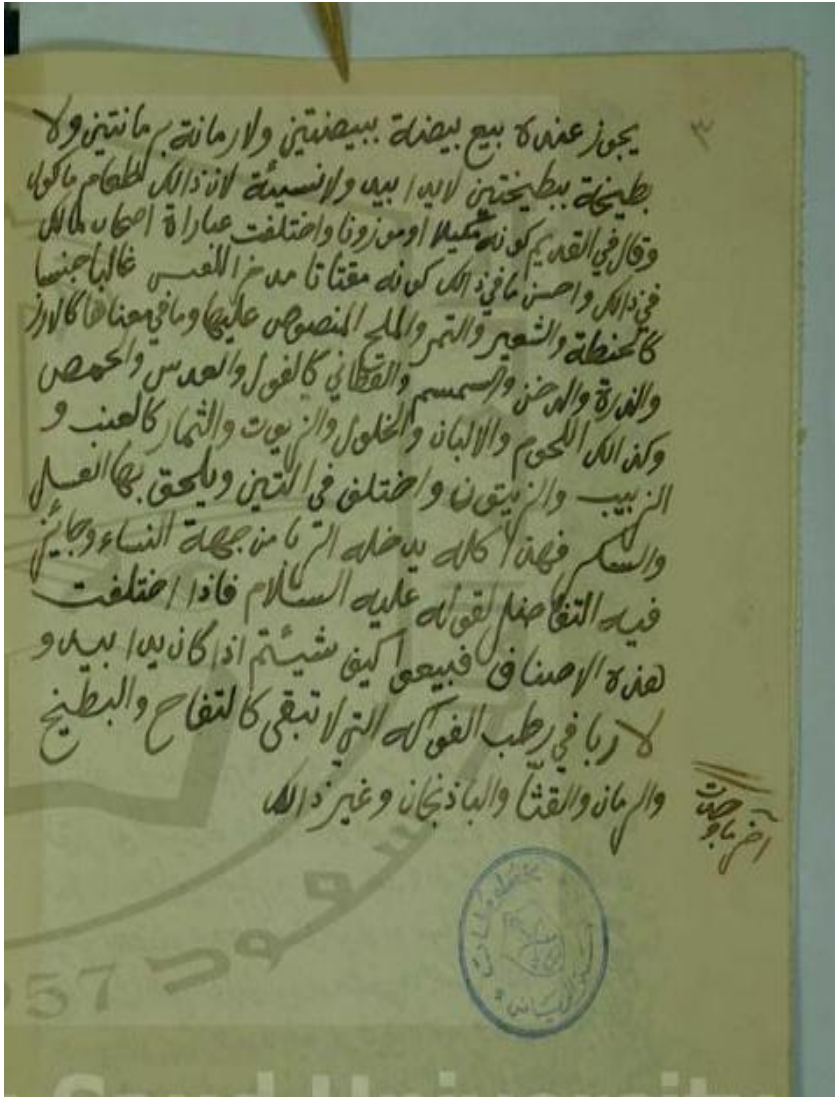 يجوز عنده بيع بيضة ببيضتين ولا رمانة برمانتين ولا
بطيخة ببطيختين لا يدا بيد ولا نسيئة لان ذالك لطعام ماكول
وقال في القديم كونه مكيلا او موزونا واختلفت عباراة اصحاب مالك
في ذالك واحسن ما في ذالك كونه مقتاتا مدخرا للعيش غالبا جنسا
كالحنطة والشعير والتمر والملح المنصوص عليها وما في معناها كالارز
والذرة والدخن والسمسم والقطاني كالفول والعدس والحمص
وكذالك اللحوم والالبان والخلول والزيوت والثمار كالعنب و
الزبيب والزيتون واختلف في التين ويلحق بها العسل
والسكر فهذا كله يدخله الربا من جهة النساء وجائز
فيه التفاضل لقوله عليه السلام فاذا اختلفت
هذه الاصناف فبيعوا كيف شيئتم اذا كان يدا بيد و
لا ربا في رطب الفواكه التي لا تبقى كالتفاح والبطيخ
والرمان والقثا والباذنجان وغير ذالك
آخر ما وجدت
٣
سعود
1957
Saud University